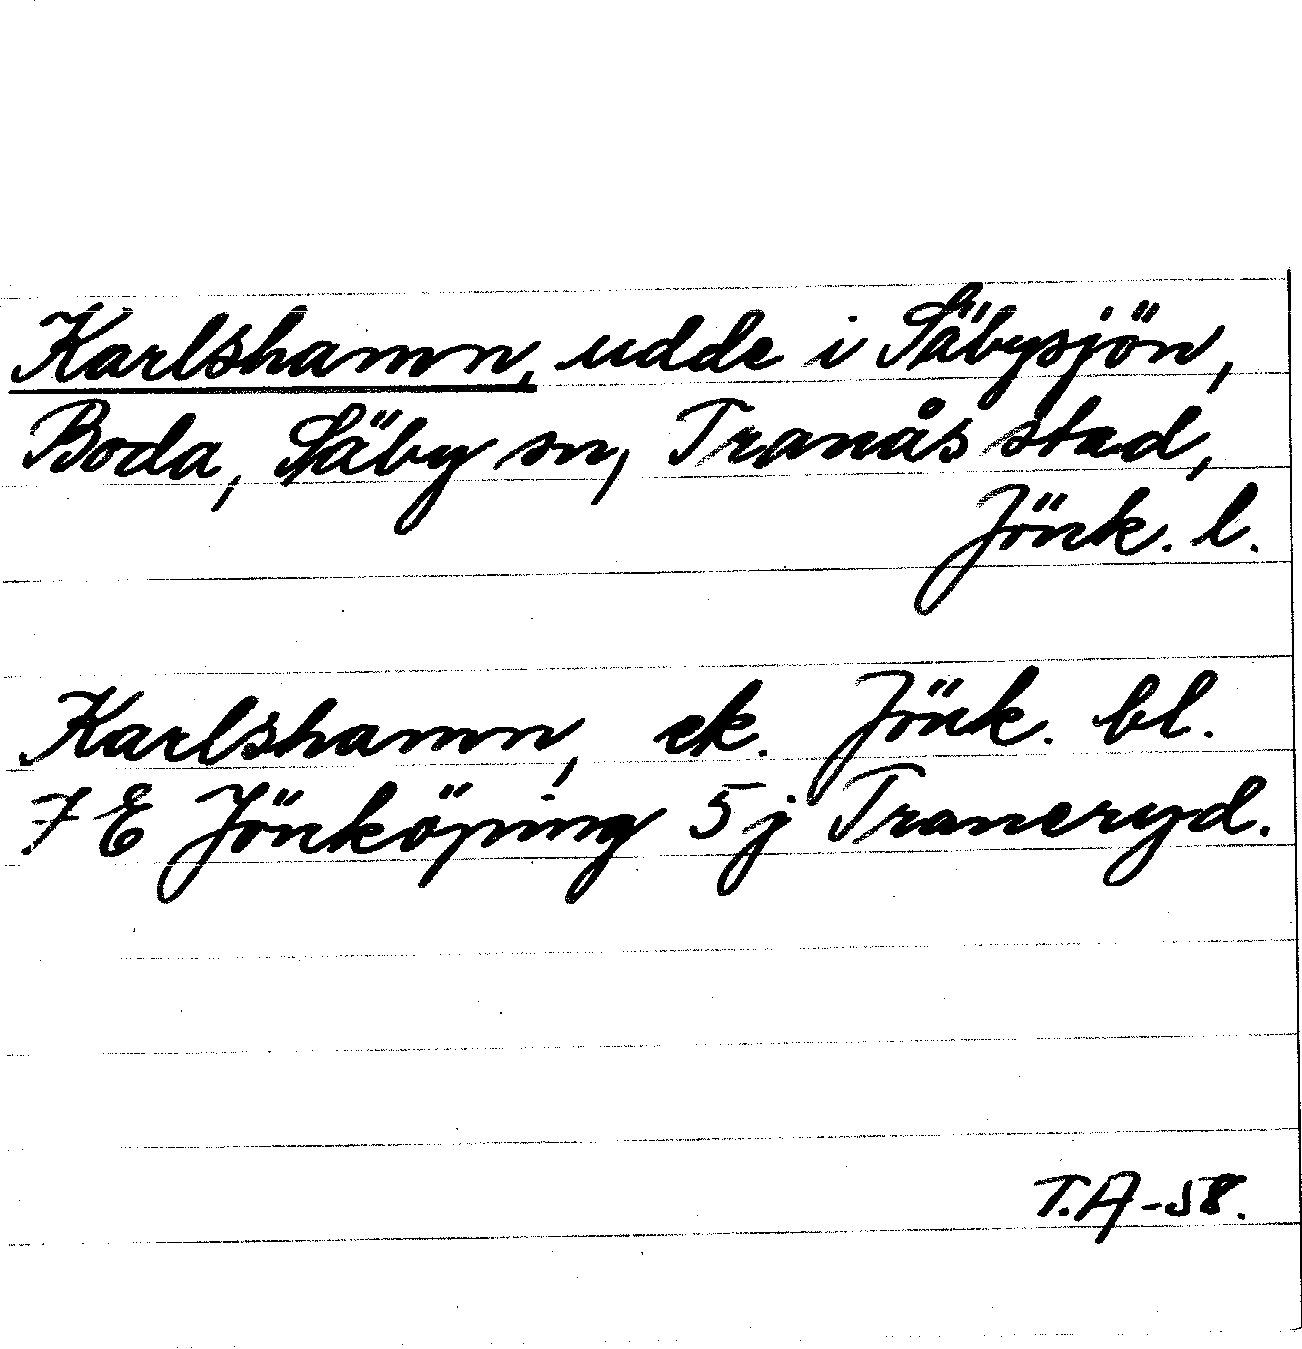 Karlshamn, udde i Säbysjön,
Boda, Säby sn, Tranås stad,
Jönk. l.
Karlshamn, ek. Jönk. bl.
7 E Jönköping 5 j Traneryd.
T.A -58.